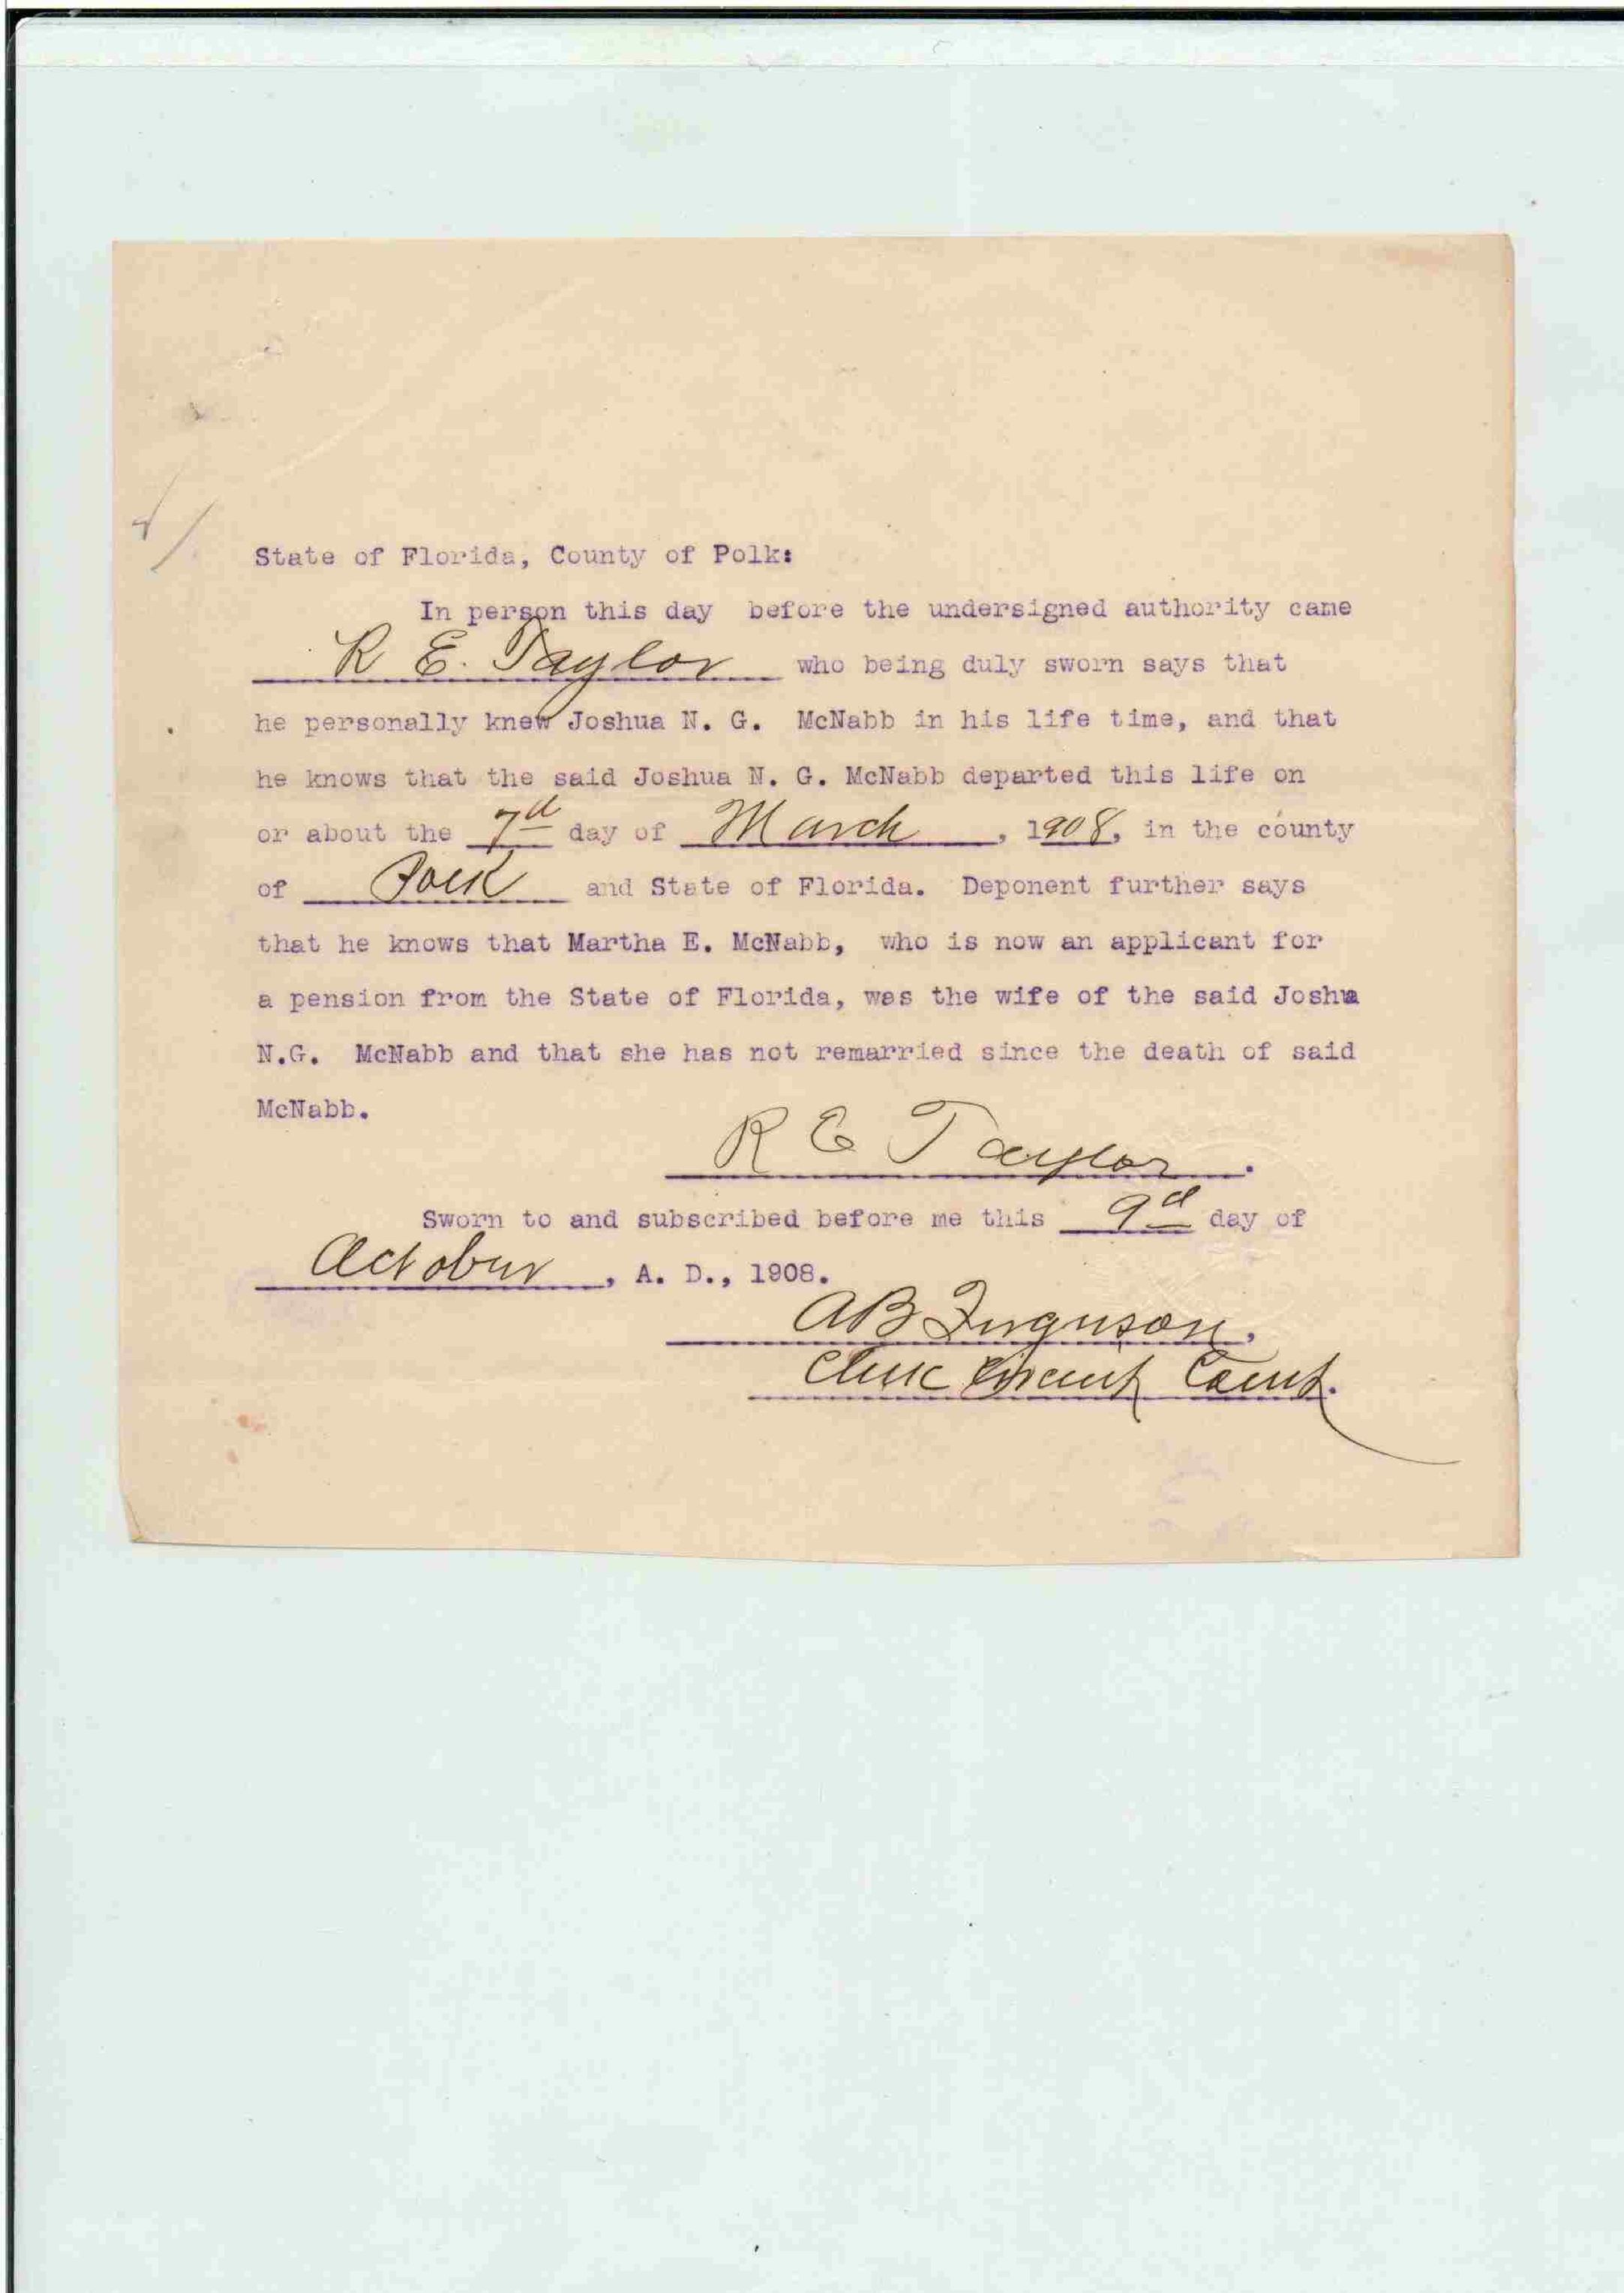 State of Florida, County of Polk:
In person this day before the undersigned authority came
R E. Taylor who being duly sworn says that
he personally knew Joshua N. G. McNabb in his life time, and that
he knows that the said Joshua N. G. McNabb departed this life on
or about the 7d day of March, 1908, in the county
of Polk and State of Florida. Deponent further says
that he knows that Martha E. McNabb, who is now an applicant for
a pension from the State of Florida, was the wife of the said Joshua
N.G. McNabb and that she has not remarried since the death of said
McNabb.
R E Taylor.
Sworn to and subscribed before me this 9d day of
October, A. D., 1908.
A B Ferguson,
Clerk Circuit Court.